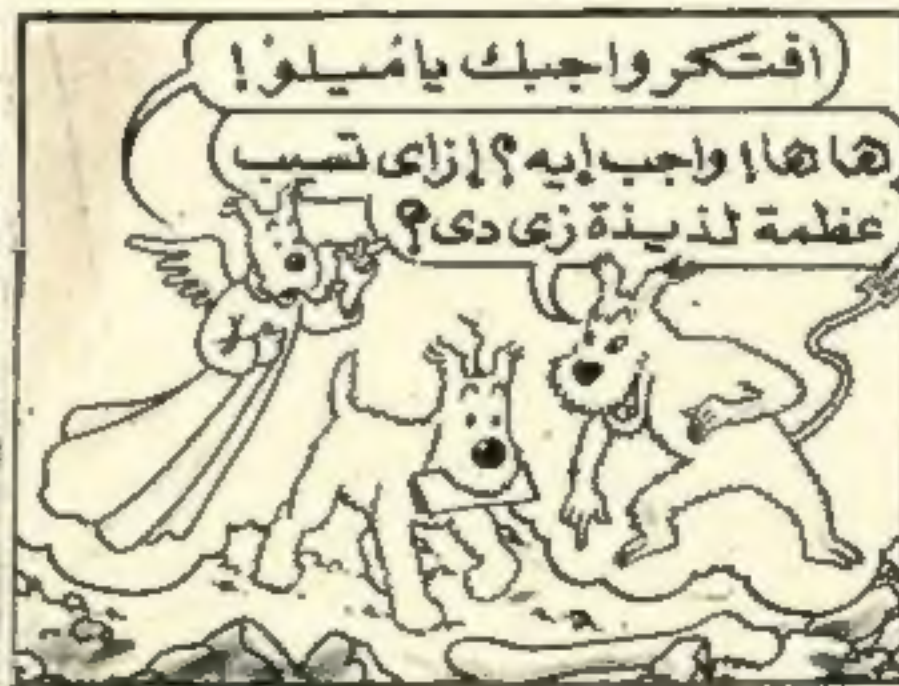 افتكر واجبك يا ميلو !
ها ها ! واجب إيه ؟ إزاى تسيب
عظمة لذيذة زى دى ؟